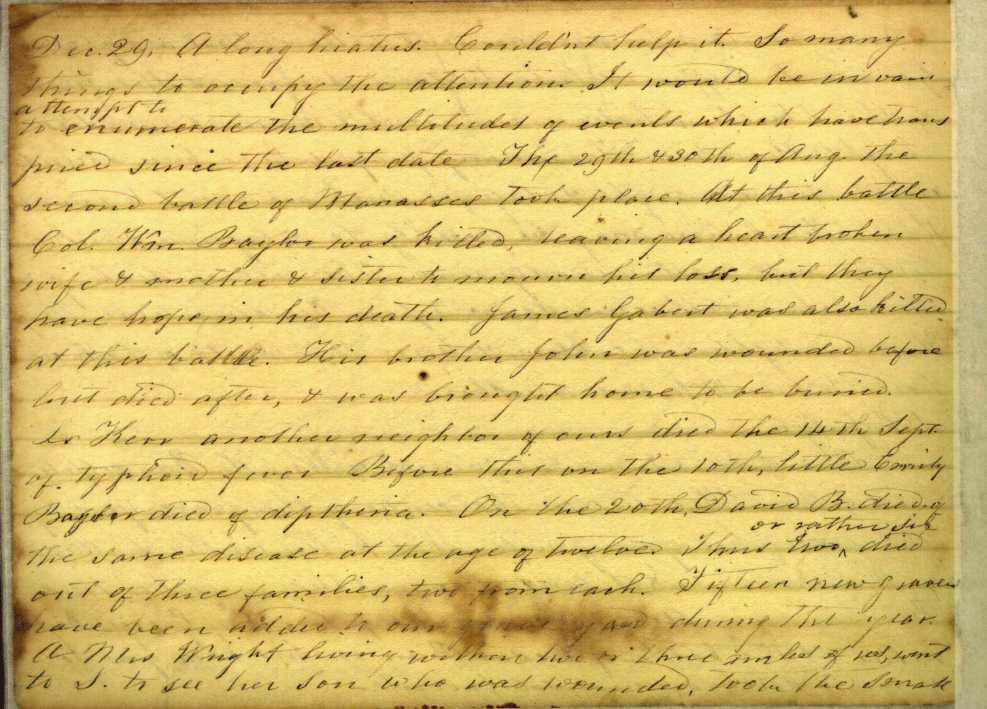 Dec. 29. A long hiatus. Couldn't help it. So many
things to occupy the attention. It would be in vain
attempt to
to enumerate the multitudes of events which have trans
pired since the last date The 29th & 30th of Aug. the
second battle of Manasses took place. At this battle
Col. Wm. Baylor was killed, leaving a heart broken
wife & mother & sister to mourn his loss, but they
have hope in his death. James Gabert was also killed
at this battle. His brother John was wounded before
but died after, & was brought home to be buried.
Kerr another neighbor of ours died the 14th Sept.
of typhoid fever Before this on the 10th, little Emily
Baylor died of diptheria. On the 20th, David B. died of
or rather six
the same disease at the age of twelve. Thus two ^ died
out of three families, two from each. Fifteen new graves
have been added to our grave yard during the year.
A Mrs Wright living within two or three miles of us, went
to S. to see her son who was wounded, took the small